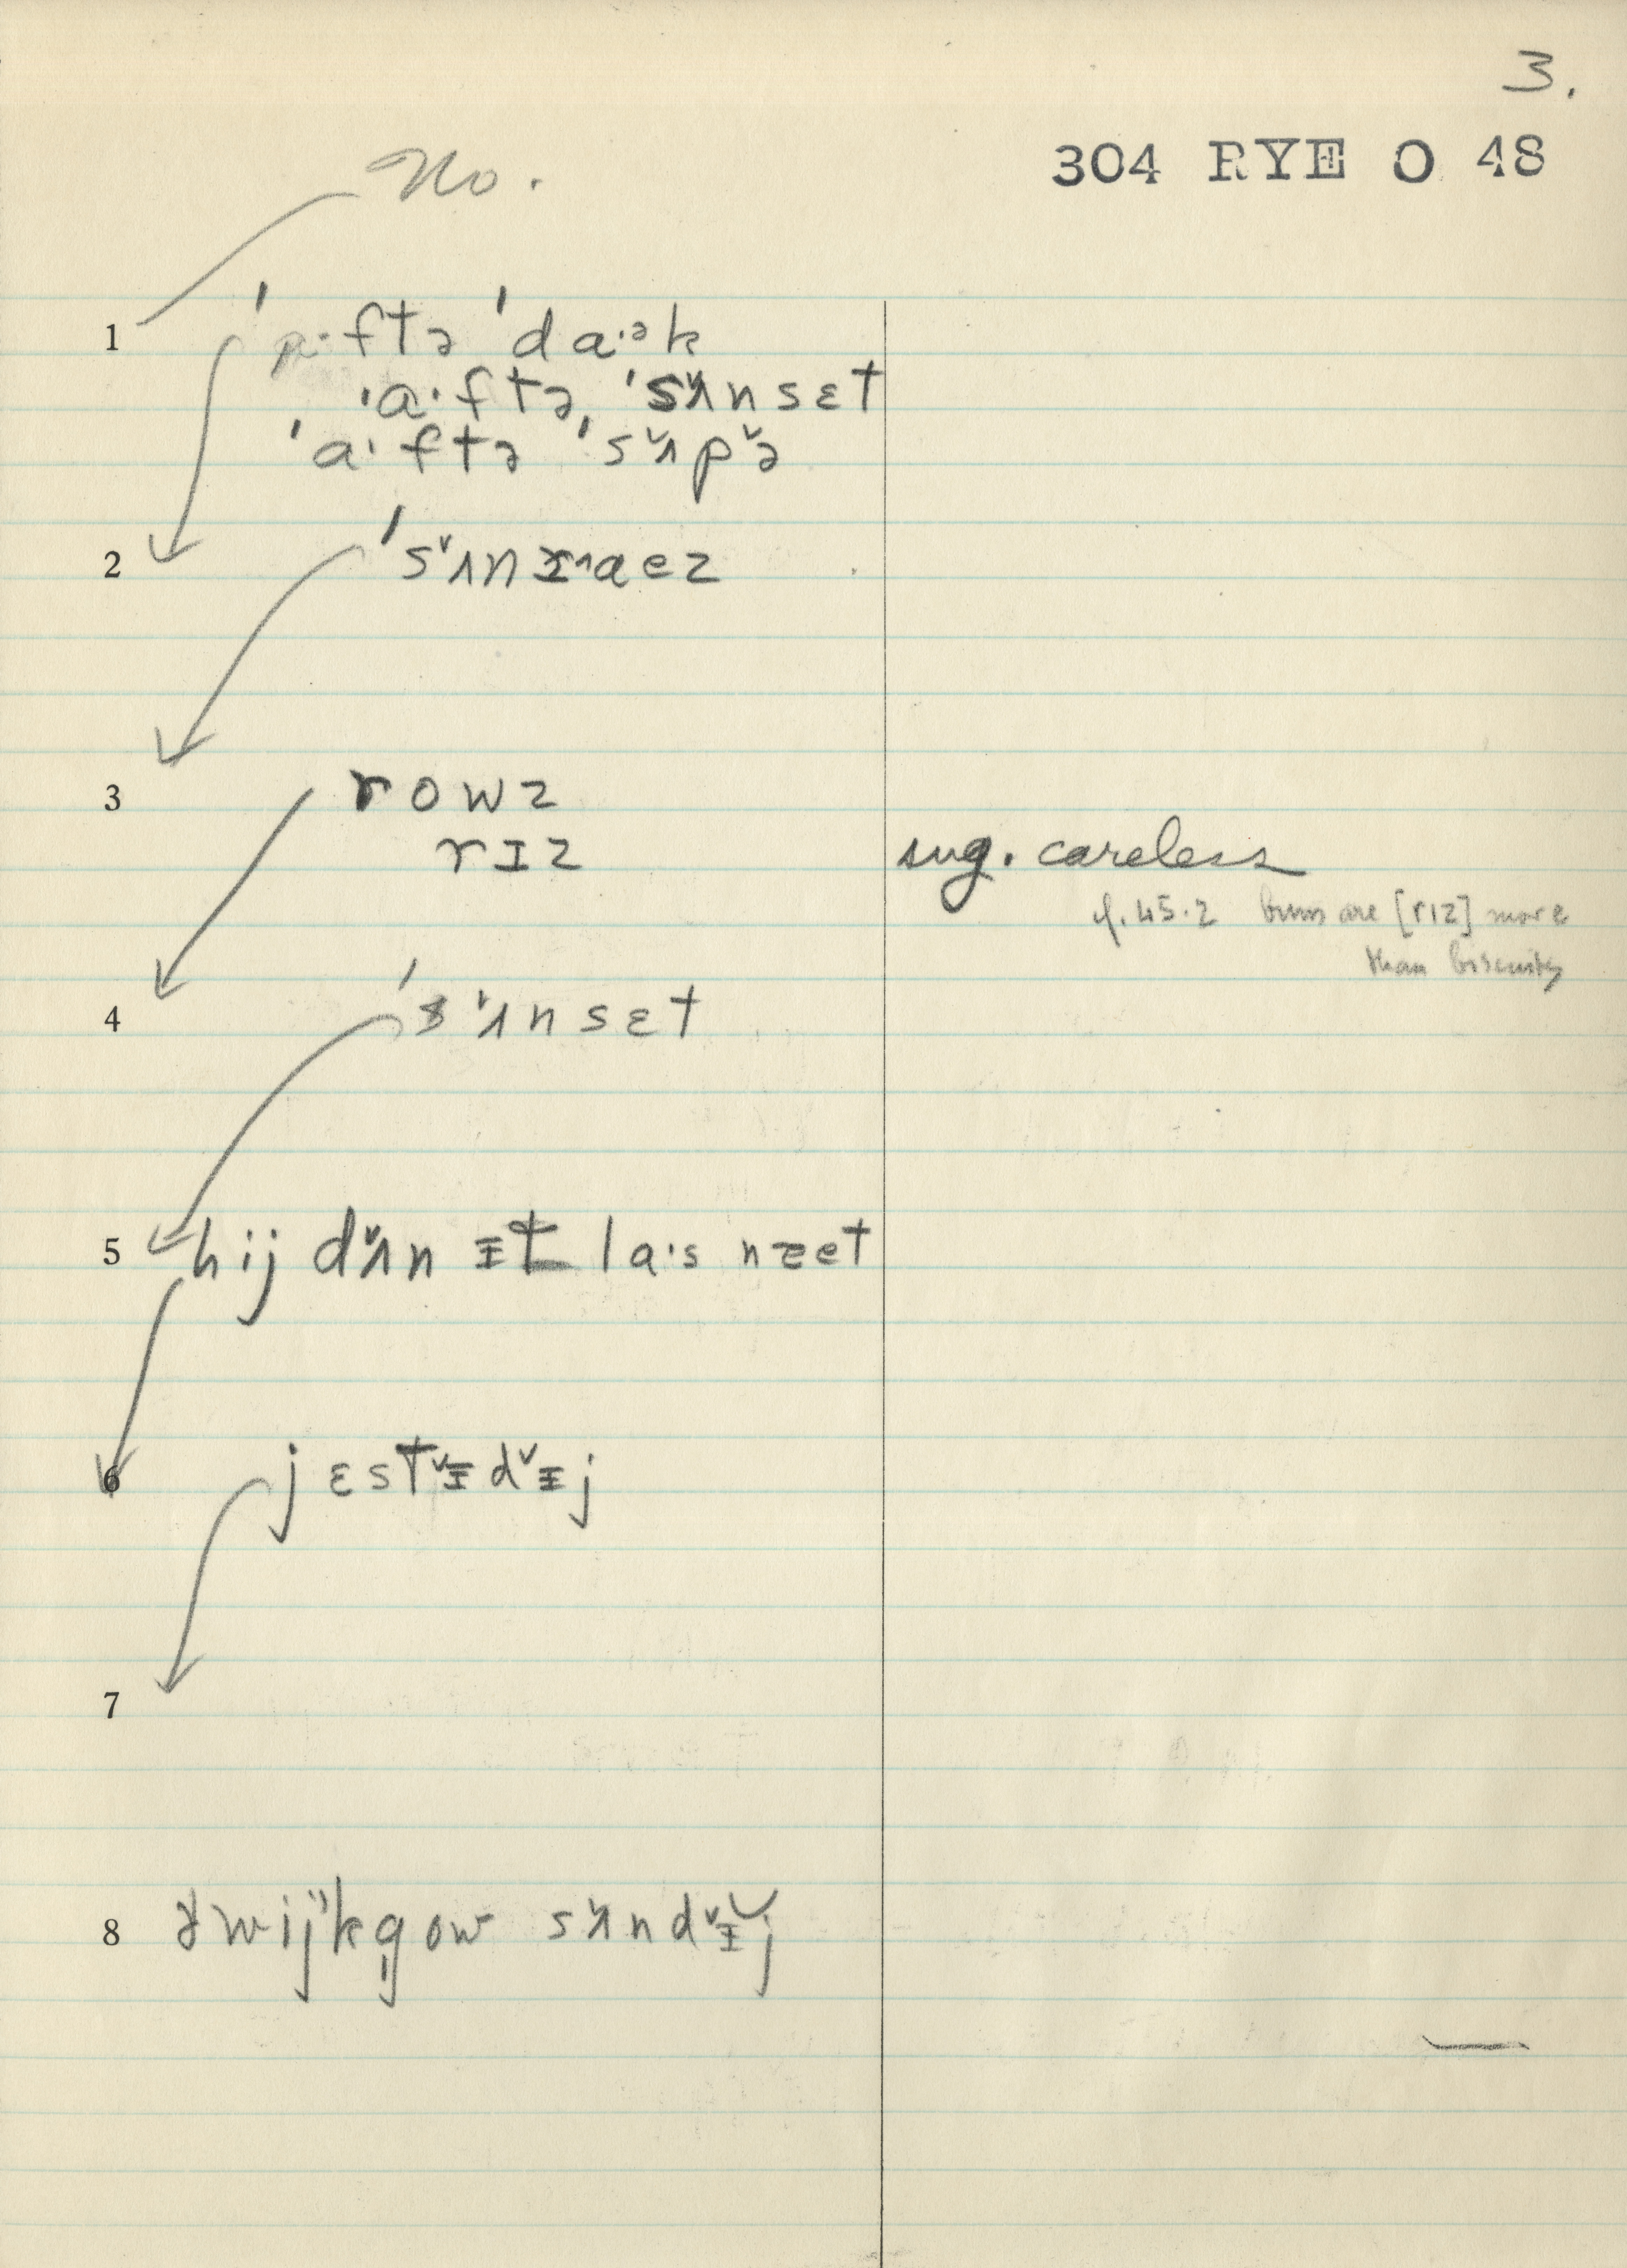 3.
304 RYE O 48
No.
1 ˈaˑftə ˈdaˑᵊk
ˈaˑftə ˈsʌ̌nsɛt
ˈaˑftə ˈsʌ̌pə̌
2 ˈsʌ̌nɪ^aez
3 rowz
rɪz sug. careless
cf. 45.2 buns are [rɪz] more
than biscuits
4 ˈsʌ̌nsɛt
5 hij dʌ̌n ɪt laˑs nɐet
6 jɛstɪ̌dɪ̌j
7
8 ə wijk gow sʌ̌ndɪ̌j